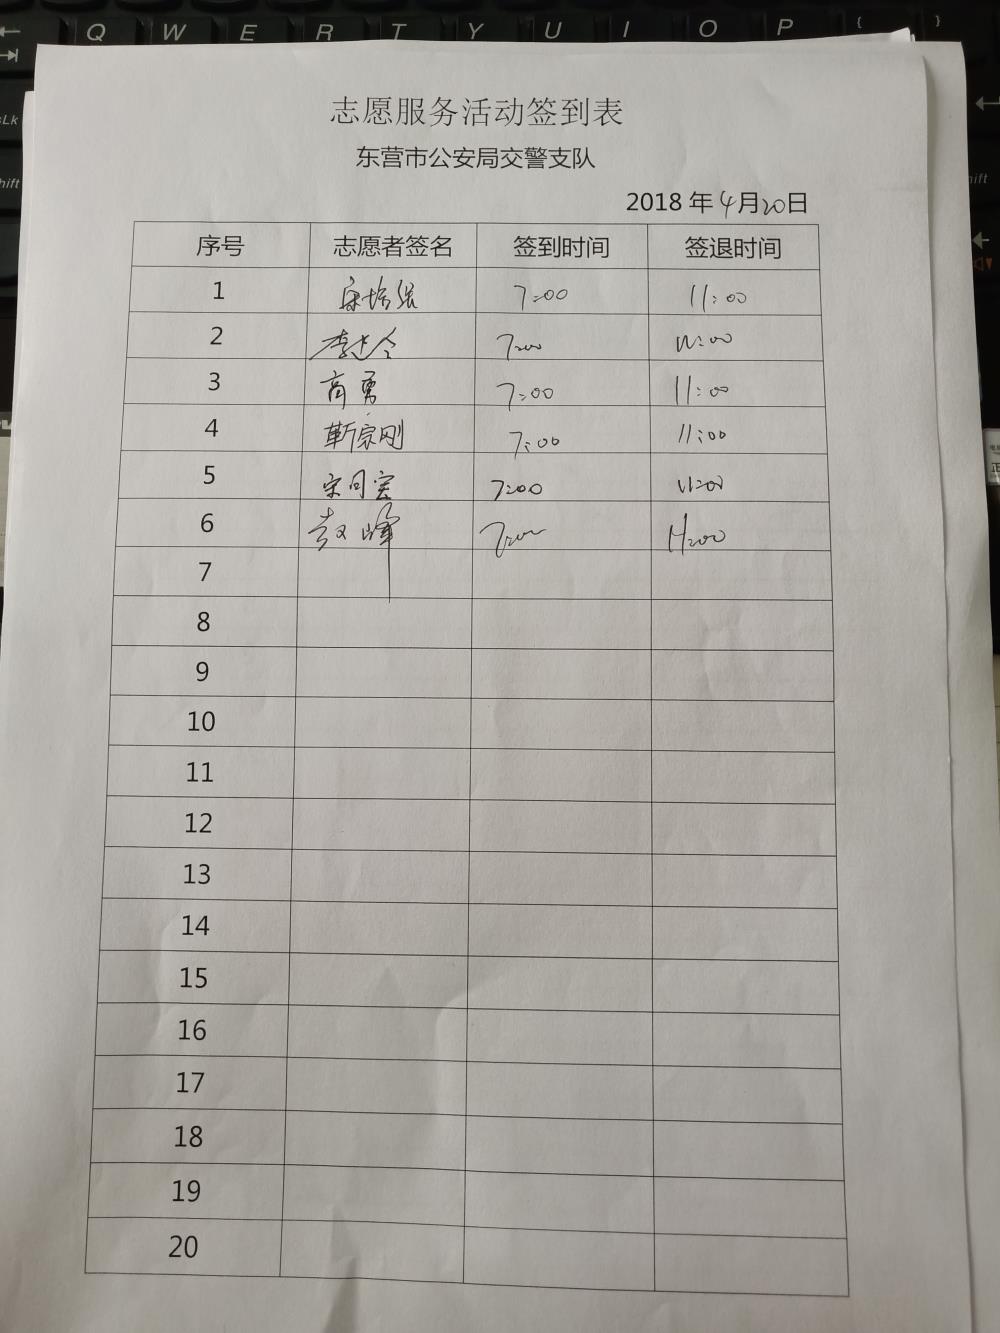 Q W E R T Y U I O P { }
sLk
hift
ift
志愿服务活动签到表
东营市公安局交警支队
2018 年 4月20日
序号 志愿者签名 签到时间 签退时间
1 7:00 11:00
2 7:00 11:00
3 高勇 7:00 11:00
4 靳宗刚 7:00 11:00
5 7:00 11:00
6 赵峰 7:00 11:00
7
8
9
10
11
12
13
14
15
16
17
18
19
20